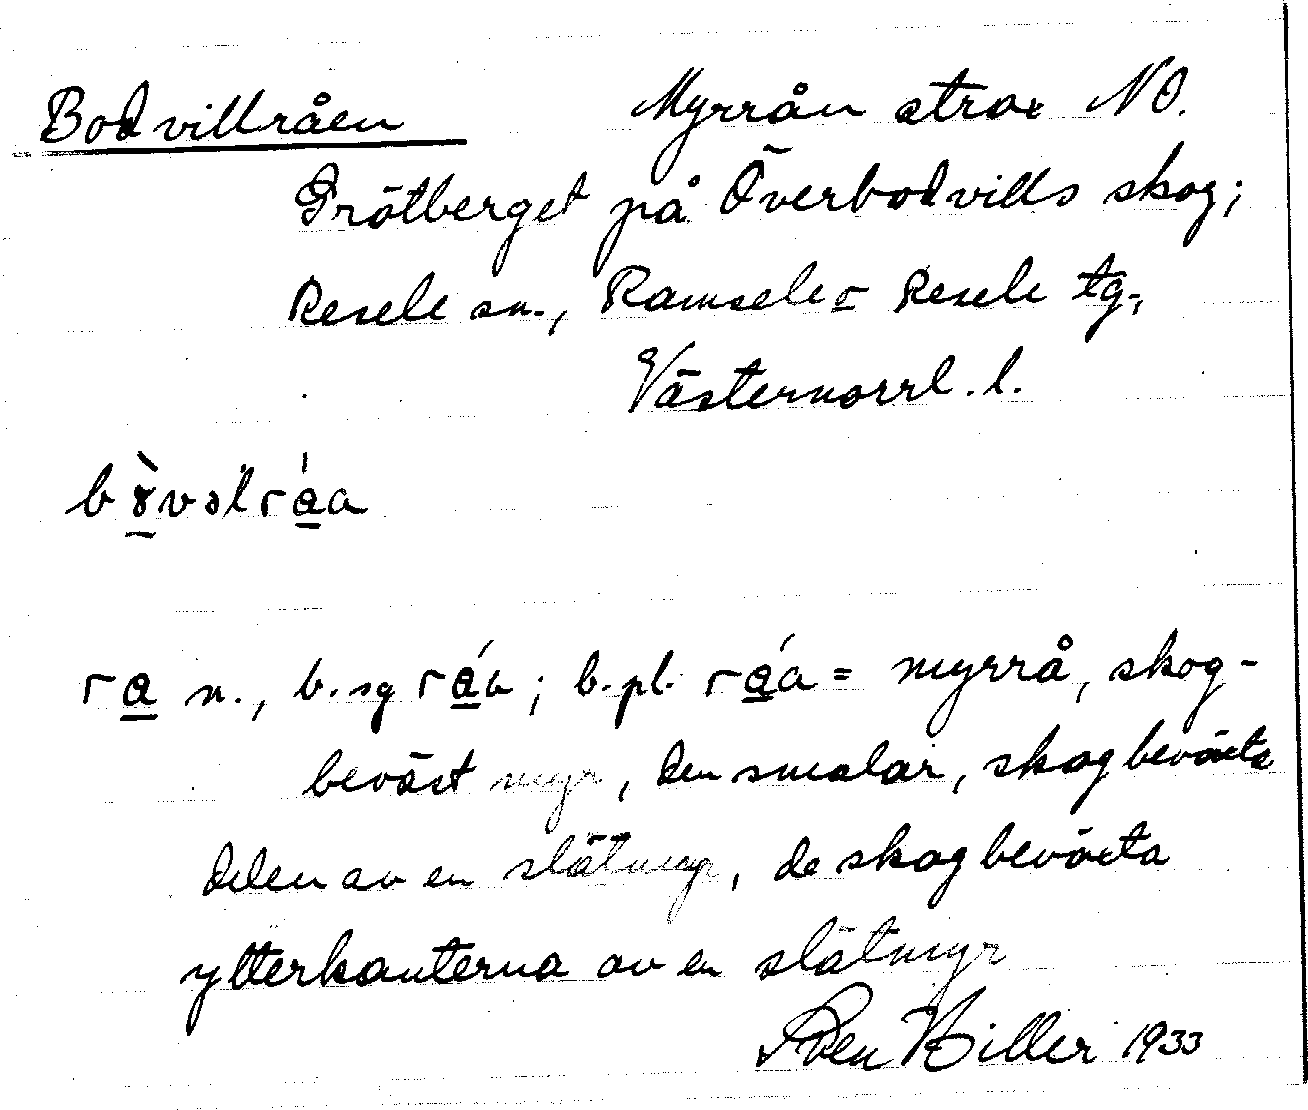 Bodvillråen Myrrån strax NO.
Grötberget på Överbodvills skog;
Resele sn., Ramsele o Resele tg.,
Västernorrl. l.
ra n., b. sg ráa; b. pl. ráa = myrrå, skog-
beväxt myr, den smalar, skogbeväxta
delen av en slåtmyr, de skogbeväxta
ytterkanterna av en slåtmyr
Sven Hiller 1933